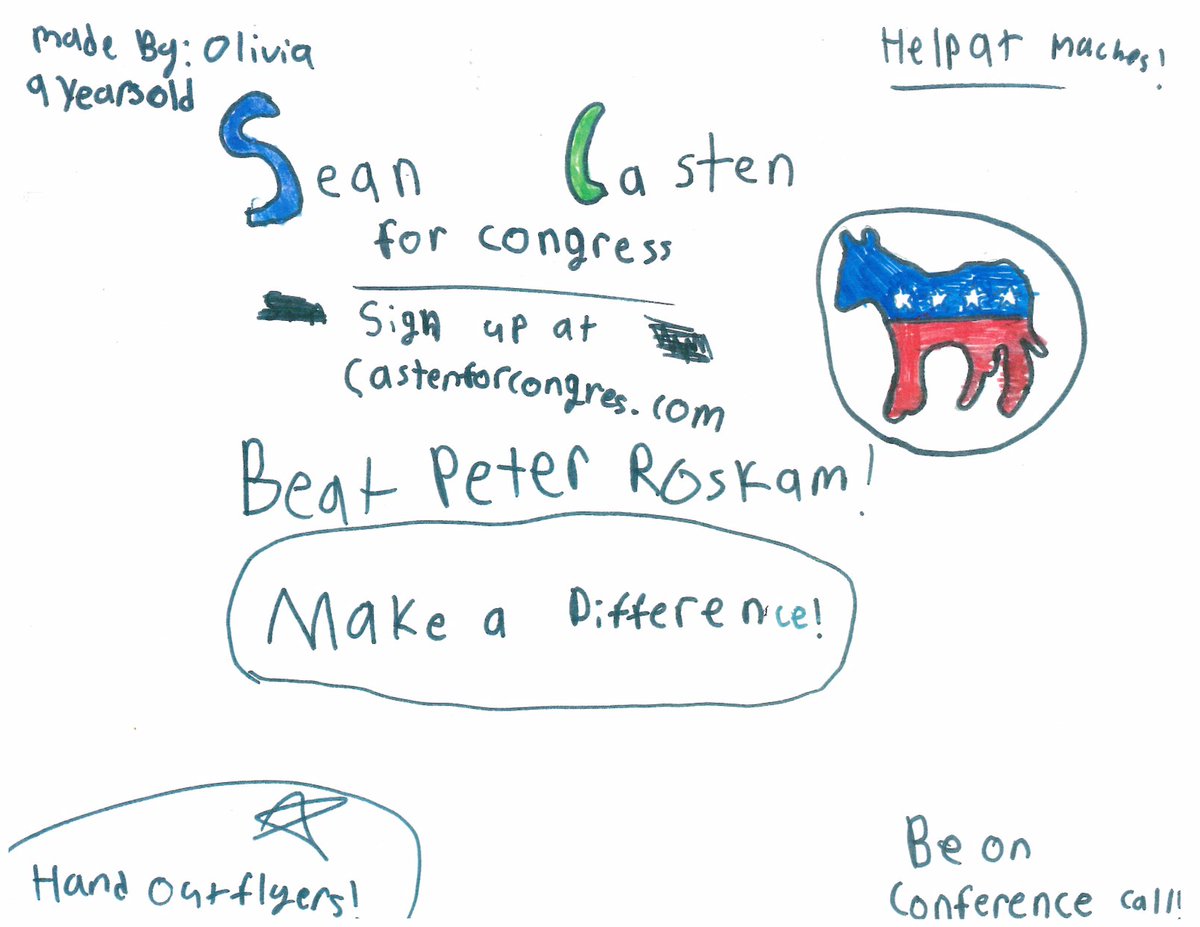 made By: Olivia
9 Years old
Help at Maches!
Sean Casten
for congress
Sign up at
Castenforcongres.com
Beat Peter Roskam!
Make a Difference!
Hand out flyers!
Be on
Conference call!